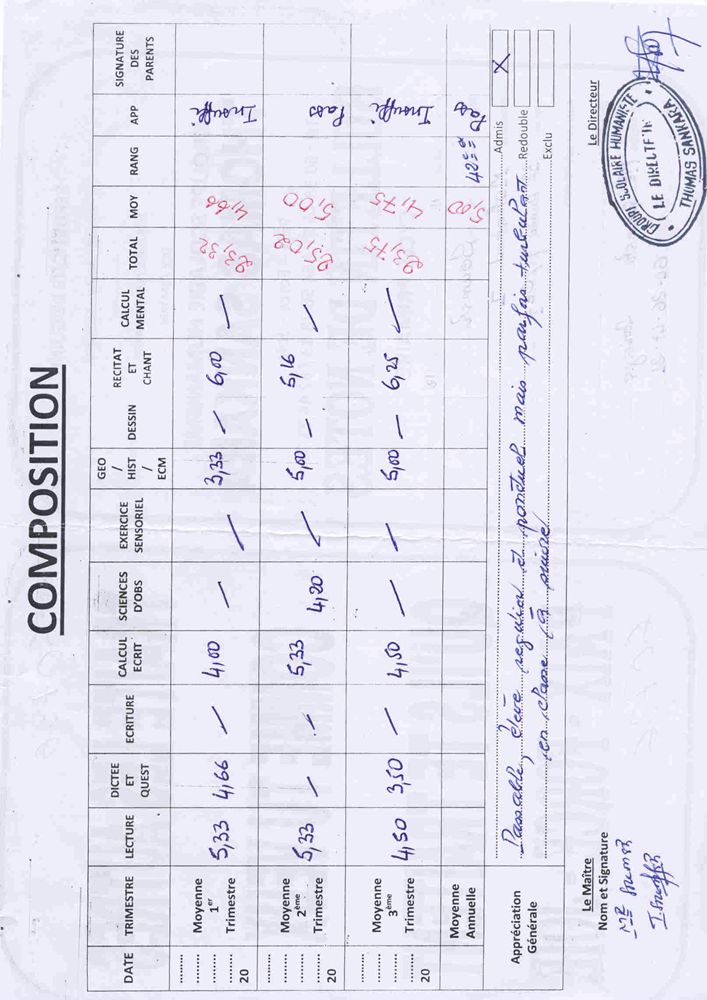 COMPOSITION
DATE TRIMESTRE LECTURE DICTEE ET QUEST ECRITURE CALCUL ECRIT SCIENCES D'OBS EXERCICE SENSORIEL GEO / HIST / ECM DESSIN RECITAT ET CHANT CALCUL MENTAL TOTAL MOY RANG APP SIGNATURE DES PARENTS
20 Moyenne 1er Trimestre 5,33 4,66 — 4,00 — — 3,33 — 6,00 — 23,32 4,66 Insuffi
20 Moyenne 2ème Trimestre 5,33 — — 5,33 4,20 — 5,00 — 5,16 — 25,02 5,00 Pass
20 Moyenne 3ème Trimestre 4,50 3,50 — 4,50 — — 5,00 — 6,25 — 23,75 4,75 Insuffi
Moyenne Annuelle 5,00 42è Pass
Appréciation Générale
Passable, élève régulier et ponctuel mais parfois turbulent
en classe
Admis X
Redouble
Exclu
Le Maître
Nom et Signature
Mr
Le Directeur
GROUPE SCOLAIRE HUMANISTE
LE DIRECTEUR
THOMAS SANKARA